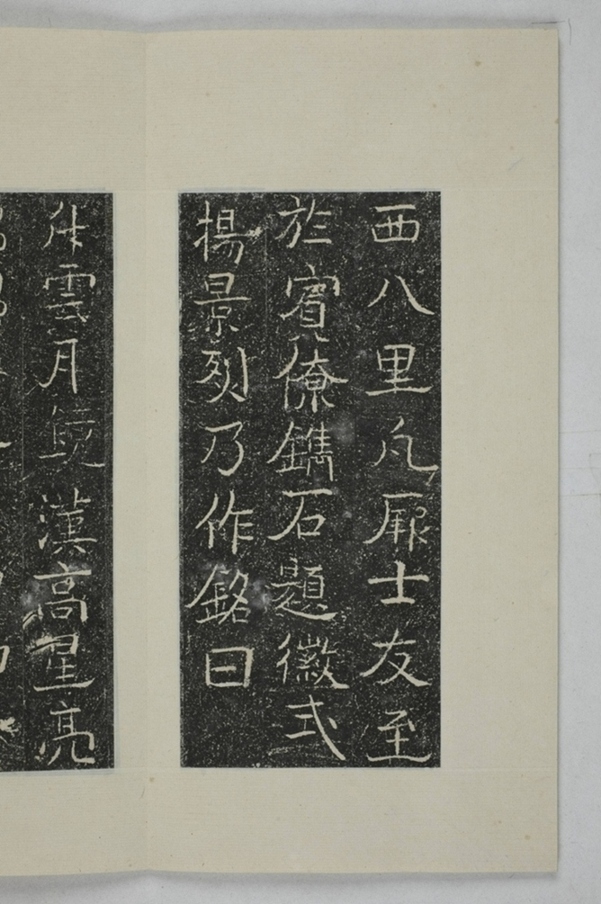 西八里凡厥士友至
於賓僚鐫石題徽式
揚景烈乃作銘曰
雲月漢高星亮